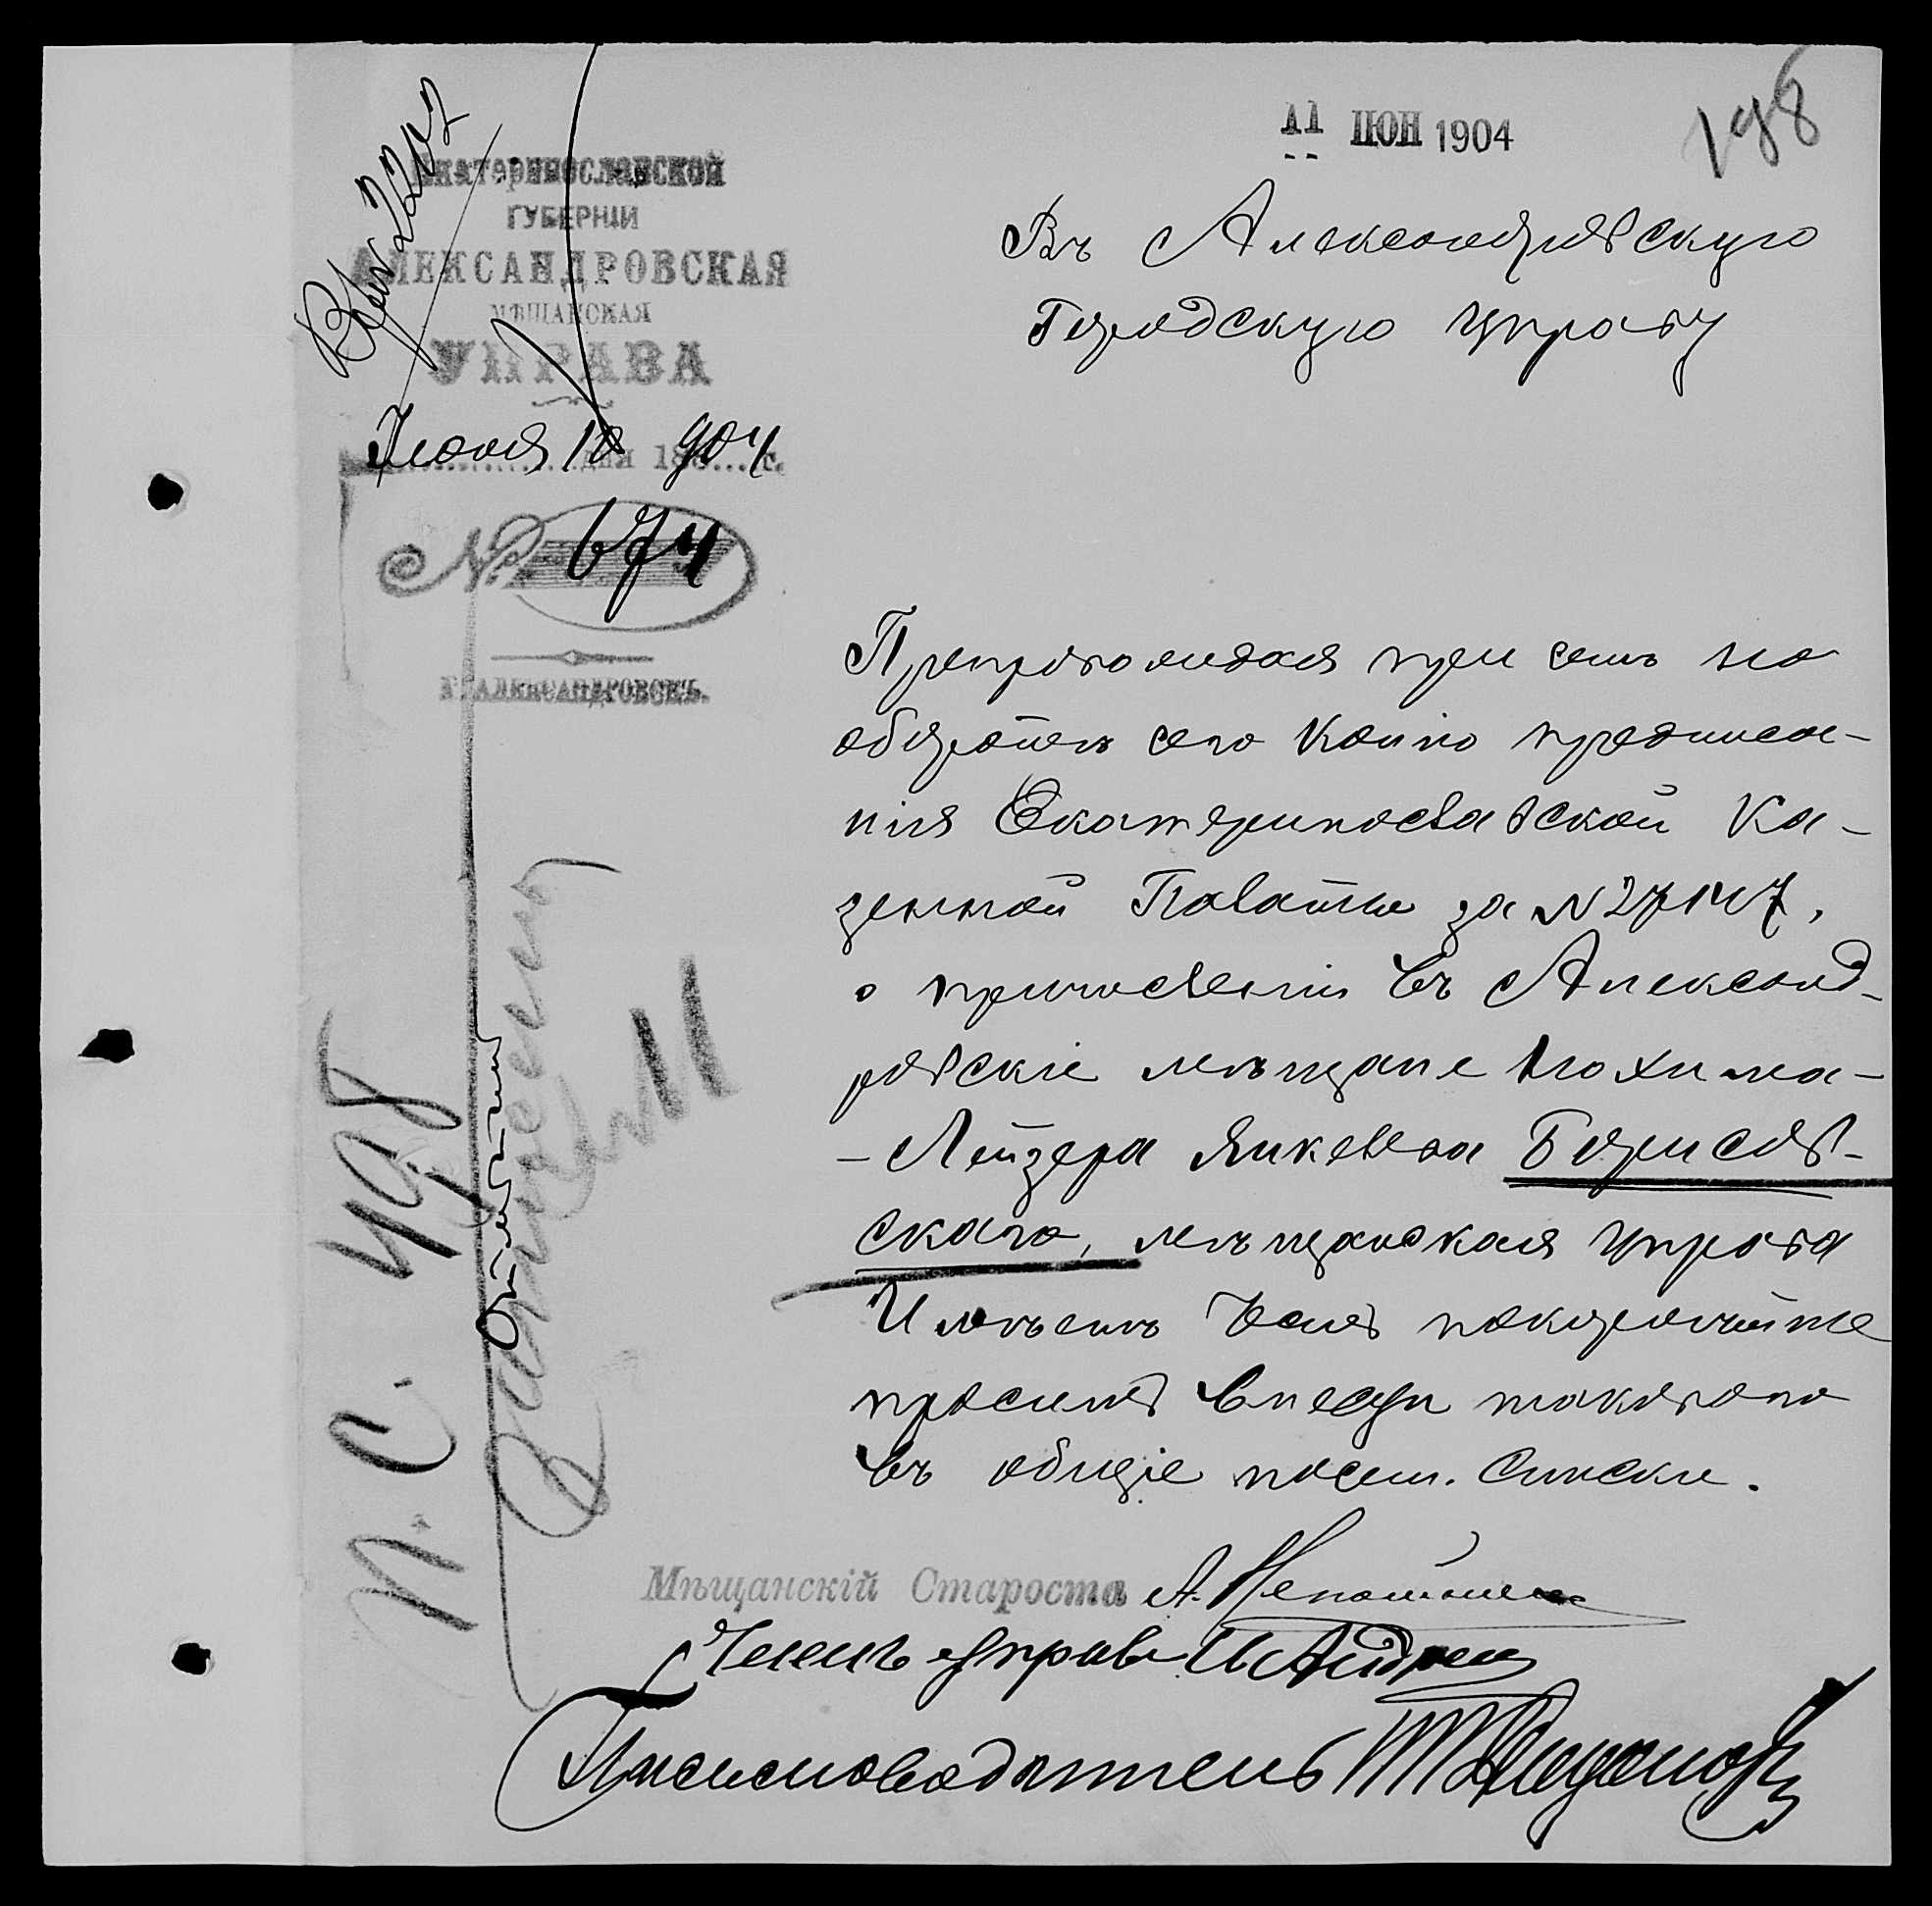 11 ІЮН 1904
198
Вх № 2207
Екатеринославской
ГУБЕРНІИ
АЛЕКСАНДРОВСКАЯ
МѢЩАНСКАЯ
УПРАВА
Іюня 10 дня 1904 г.
№ 674
Г. АЛЕКСАНДРОВСКЪ.
Въ Александровскую
Городскую управу
Препровождая при семъ на
оборотѣ сего копію предписа-
нія Екатеринославской Ка-
зенной Палаты за №27147,
о причисленіи въ Александ-
ровскіе мѣщане Нохима-
-Лейзера Янкелева Борисов-
скаго, мѣщанская управа
Имѣетъ честь покорнѣйше
проситъ внести таковаго
въ общіе посем. списки.
П. С. 498
Мѣщанскій Староста А.
Членъ управы
Письмоводитель